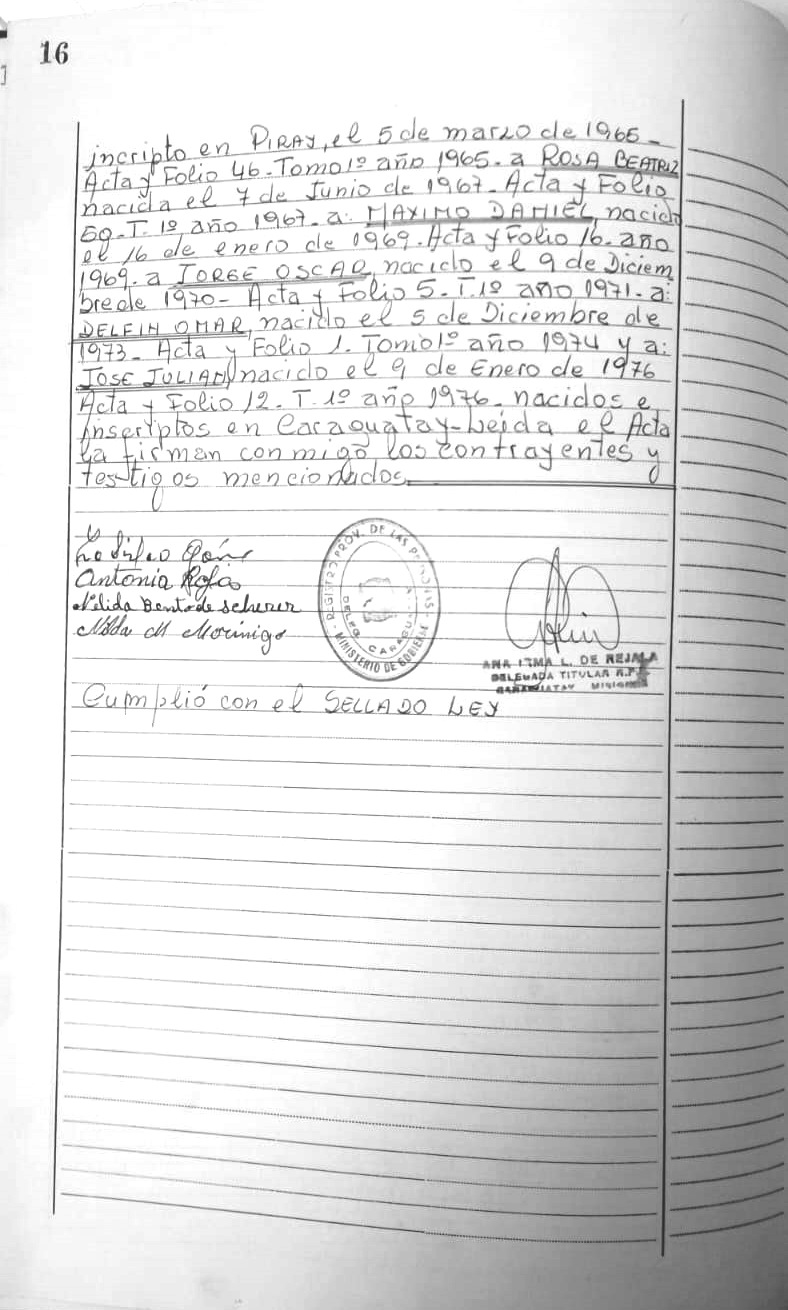 16
incripto en PIRAY, el 5 de marzo de 1965-
Acta y Folio 46-Tomo 1º año 1965- a ROSA BEATRIZ
nacida el 7 de Junio de 1967- Acta y Folio
69-T. 1º año 1967- a: MAXIMO DANIEL, nacido
el 16 de enero de 1969. Acta y Folio 16- año
1969. a JORGE OSCAR, nacido el 9 de Diciem
bre de 1970- Acta y Folio 5- T. 1º año 1971- a:
DELFIN OMAR, nacido el 5 de Diciembre de
1973- Acta y Folio 1. Tomo 1º año 1974 y a:
JOSE JULIAN, nacido el 9 de Enero de 1976
Acta y Folio 12- T. 1º año 1976- nacidos e
inscriptos en Caraguatay- Leída el Acta
la firman conmigo los contrayentes y
testigos mencionados.
Antonia Rojas
Nélida Bento de Scherer
Nilda M Morinigo
REGISTRO PROV. DE LAS PERSONAS
DELEG. CARAGU
MINISTERIO DE GOBIERNO
ANA IRMA L. DE NEJALA
DELEGADA TITULAR R.P.
CARAGUATAY MISIONES
Cumplió con el SELLADO LEY